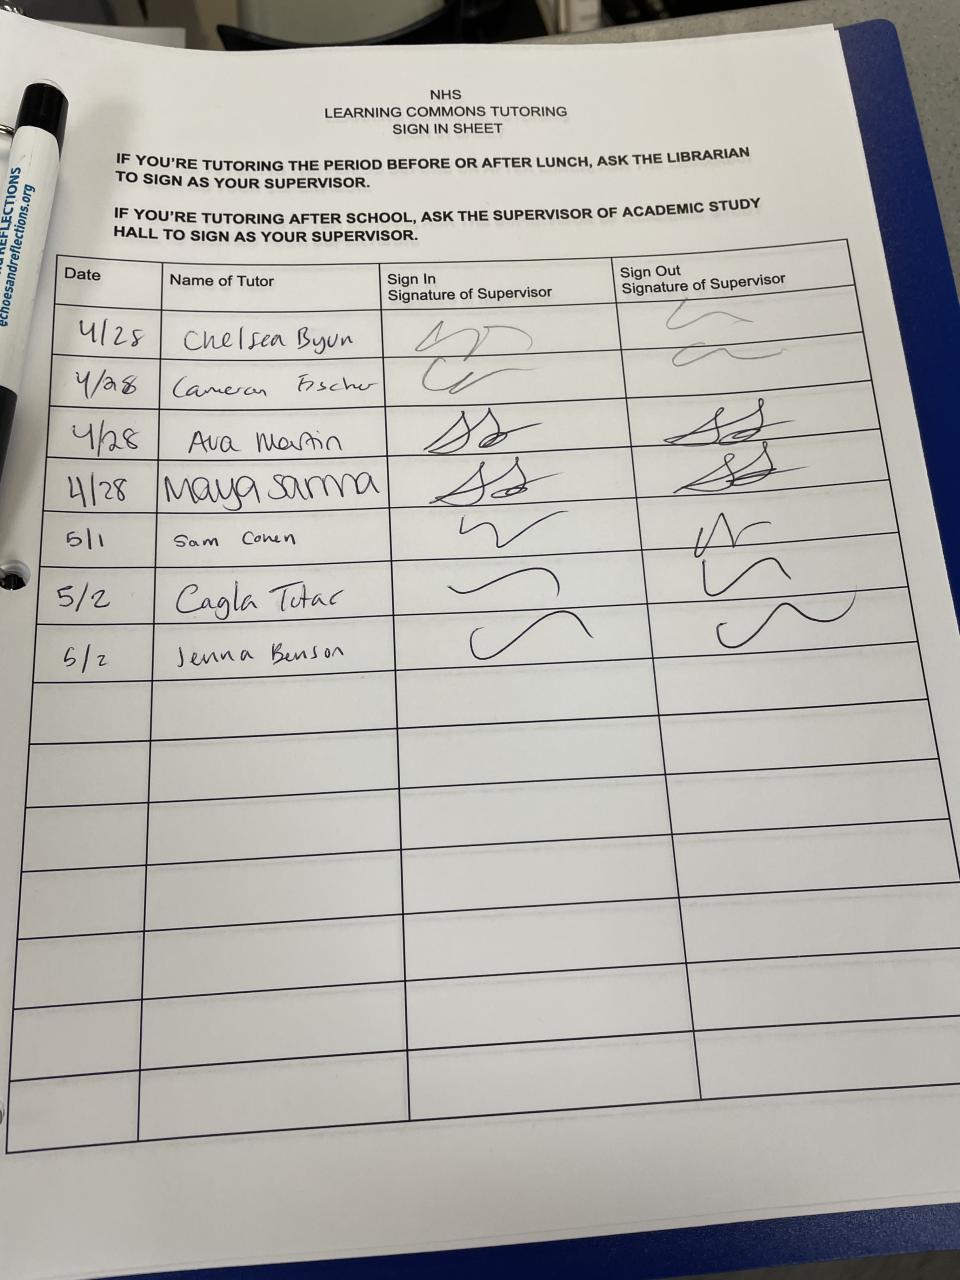 NHS
LEARNING COMMONS TUTORING
SIGN IN SHEET
IF YOU'RE TUTORING THE PERIOD BEFORE OR AFTER LUNCH, ASK THE LIBRARIAN
TO SIGN AS YOUR SUPERVISOR.
IF YOU'RE TUTORING AFTER SCHOOL, ASK THE SUPERVISOR OF ACADEMIC STUDY
HALL TO SIGN AS YOUR SUPERVISOR.
Date Name of Tutor Sign In Signature of Supervisor Sign Out Signature of Supervisor
4/28 Chelsea Byun
4/28 Cameron Fischer
4/28 Ava Martin
4/28 Maya Sarma
5/1 Sam Cohen
5/2 Cagla Tutac
5/2 Jenna Benson
REFLECTIONS
echoesandreflections.org